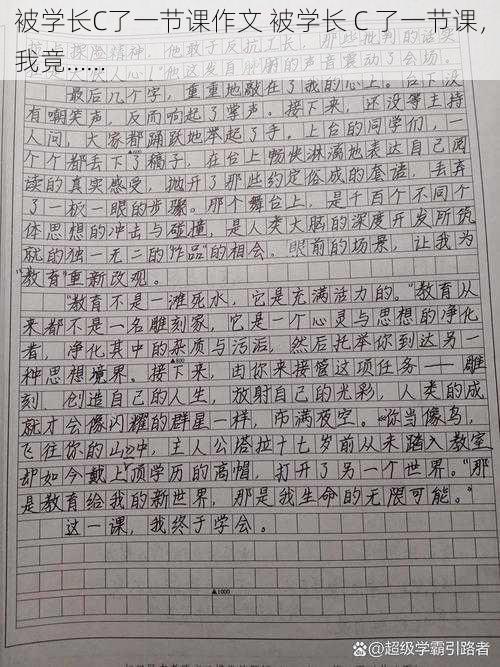 被学长C了一节课作文 被学长 C 了一节课,
我竟......
探险精神，他敢于反抗工长，那些批判的话
人心！"他这发自肺腑的声音震动了会场。
最后几个字，重重地敲在了我的心上。台下没
有嘲笑声，反而响起了掌声。接下来，还没等主持
人问，大家都踊跃地举起了手，上台的同学们，一
个个都丢下了稿子，在台上畅快淋漓地表达自己阅
读的真实感受，抛开了那些约定俗成的套语，丢弃
了一板一眼的步骤。那个舞台上，是千百个不同个
体思想的冲击与碰撞，是人类大脑的深度开发所筑
就的独一无二的"作品"的相会。眼前的场景，让我为
"教育"重新改观。
"教育不是一滩死水，它是充满活力的。"教育从
来都不是一名雕刻家，它是一个心灵与思想的净化
者，净化其中的杂质与污垢，然后托举你到达另一
▲800
种思想境界。接下来，由你来接管这项任务——雕
刻，创造自己的人生，放射自己的光彩，人类的成
就才会像闪耀的群星一样，布满夜空。《你当像鸟，
飞往你的山》中，主人公塔拉十七岁前从未踏入教室
却如今戴上顶学历的高帽，打开了另一个世界。"那
是教育给我的新世界，那是我生命的无限可能。"
这一课，我终于学会。
▲1000
@超级学霸引路者